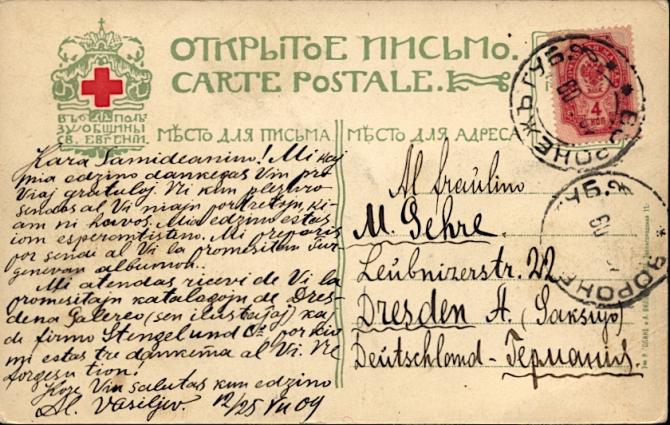 ОТКРЫТОЕ ПИСЬМО.
CARTE POSTALE.
ВЪ ПОЛЬ
ЗУ ОБЩИНЫ
СВ. ЕВГЕНІИ.
МѢСТО ДЛЯ ПИСЬМА
МѢСТО ДЛЯ АДРЕСА
4
КОП
ВОРОНЕЖЪ ГУБ.
Kara Samideanino! Mi kaj
mia edzino dankegas Vin pro
Viaj gratuloj. Vi kun plezuro
sendos al Vi niajn portretojn, ki-
am ni havos. Mia edzino estas
iom esperantistino. Mi preparis
por sendi al Vi la promesitan Tur-
genevan albumon.
Mi atendas ricevi de Vi la
promesitajn katalogojn de Dres-
dena Galereo (sen ilustrajoj) kaj
de firmo Stengel und Co. por kio
mi estas tre dankema al Vi. Ne
forgesu tion!
Kore Vin salutas kun edzino
Al. Vasiljev. 12/25 VII 09
Al fraŭlino
M. Gehre.
Leubnizerstr. 22
Dresden A. (Saksujo)
Deutschland - Германія.
ВОРОНЕ
ГУБ.